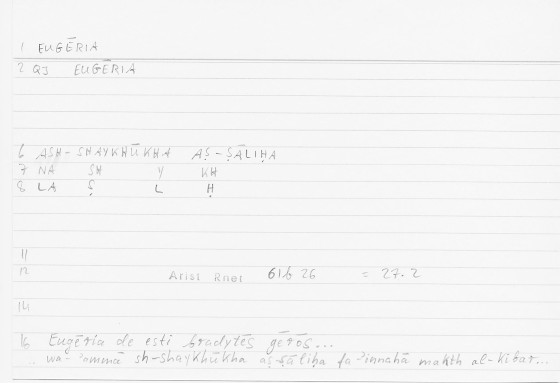 1 EUGĒRIA
2 QJ EUGĒRIA
6 ASH-SHAYKHŪKHA AṢ-ṢĀLIḤA
7 NA SH Y KH
8 LA Ṣ L Ḥ
11
12 Arist Rhet 61b 26 = 27.2
14
16 Eugēria de esti bradytēs gērōs...
wa-'ammā sh-shaykhūkha aṣ-ṣāliḥa fa-'innahā makth al-kibar...